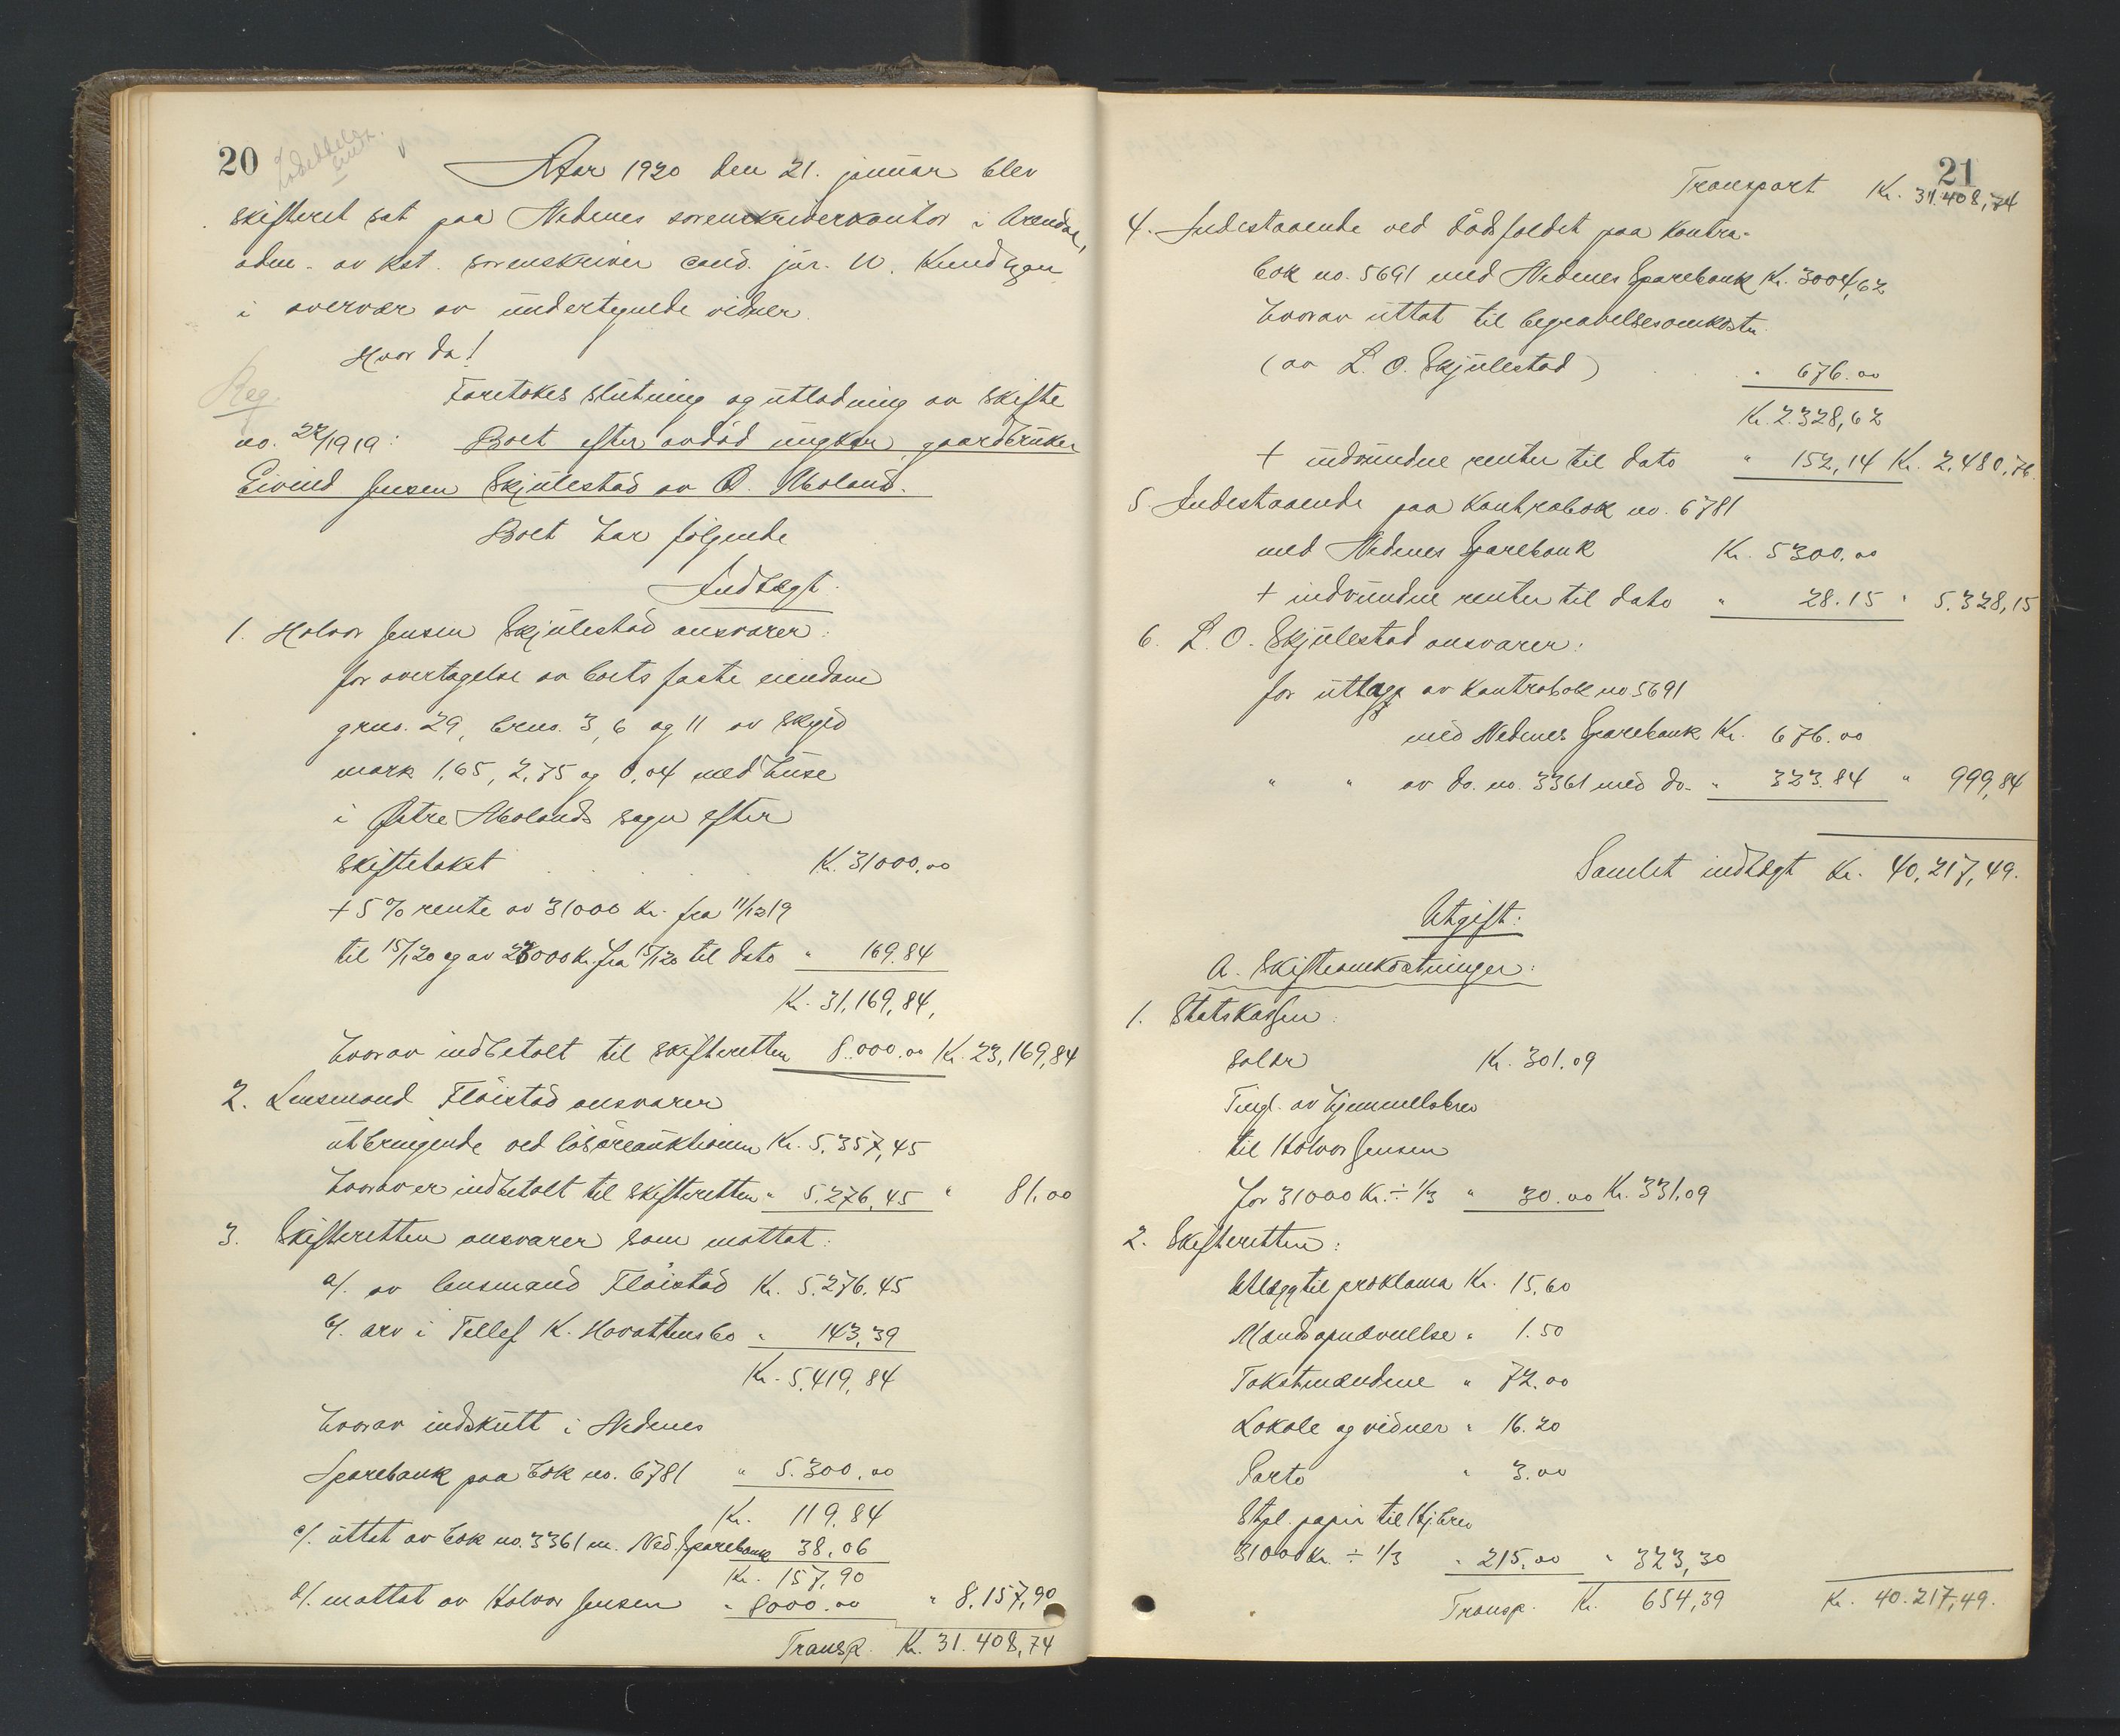 20
Aar 1920 den 21. januar blev
skifteret sat paa Nedenes sorenskriverkontor i Arendal,
adm. av kst. sorenskriver cand. jur. W. Knudtzen
i overvær av undertegnede vidner.
Hvor da!
Reg.
Foretokes slutning og utlodning av skifte
no. 22/1919: Boet efter avdöd ungkar, gaardbruker
Eivind Jensen Skjulestad av Ö. Moland.
Boet har följende
Indtægt:
1. Halvor Jensen Skjulestad ansvarer:
for overtagelse av boets faste eiendom
grno. 29, brno. 3, 6 og 11 av skyld
mark 1,65, 2,75 og 0,04 med huse
i Östre Molands sogn efter
skiftetakst . . . . Kr. 31000,00
+ 5% rente av 31000 Kr. fra 11/12 19
til 15/1 20 og av 23000 Kr. fra 15/1 20 til dato " 169.84
Kr. 31,169,84,
hvorav indbetalt til skifteretten 8.000.00 Kr. 23,169,84
2. Lensmand Flöistad ansvarer
utbringende ved lösöreauktionen Kr. 5.357,45
hvorav er indbetalt til skifteretten " 5.276,45 " 81,00
3. Skifteretten ansvarer som mottat:
a/. av lensmand Flöistad Kr. 5.276.45
b/. arv i Tellef K. Hovattens bo " 143,39
Kr. 5,419,84
hvorav indskutt i Nedenes
Sparebank paa bok no. 6781 " 5.300,00
Kr. 119,84
c/. uttat av bok no. 3361 m. Ned. Sparebank 38,06
Kr. 157,90
d/. mottat av Halvor Jensen " 8000.00 " 8.157,90
Transp. Kr. 31.408,74
21
Transport Kr. 31.408,74
4. Indestaaende ved dödsfaldet paa kontra-
bok no. 5691 med Nedenes Sparebank Kr. 3004,62
hvorav uttat til begravelsesomkostn.
(av L. O. Skjulestad) . . " 676.00
Kr. 2.328,62
+ indvundne renter til dato " 152,14 Kr. 2,480,76
5. Indestaaende paa kontrabok no. 6781
med Nedenes Sparebank Kr. 5300.00
+ indvundne renter til dato " 28.15 " 5.328,15
6. L. O. Skjulestad ansvarer:
for uttagg av kontrabok no 5691
med Nedenes Sparebank Kr. 676.00
" " av do. no. 3361 med do. " 323.84 " 999,84
Samlet indtægt Kr. 40,217,49.
Utgift:
A. Skifteomkostninger:
1. Statskassen:
salær Kr. 301.09
Tingl. av hjemmelsbrev
til Halvor Jensen
for 31000 Kr. ÷ 1/3 " 30.00 Kr. 331,09
2. Skifteretten:
Utlægg til proklama Kr. 15,60
Mandsopnævnelse " 1.50
Takstmændene " 72.00
Lokale og vidner " 16.20
Porto " 3.00
Stpl. papir til Hj.brev
31000 Kr. ÷ 1/3 " 215.00 " 323,30
Transp. Kr. 654,39 Kr. 40.217,49.